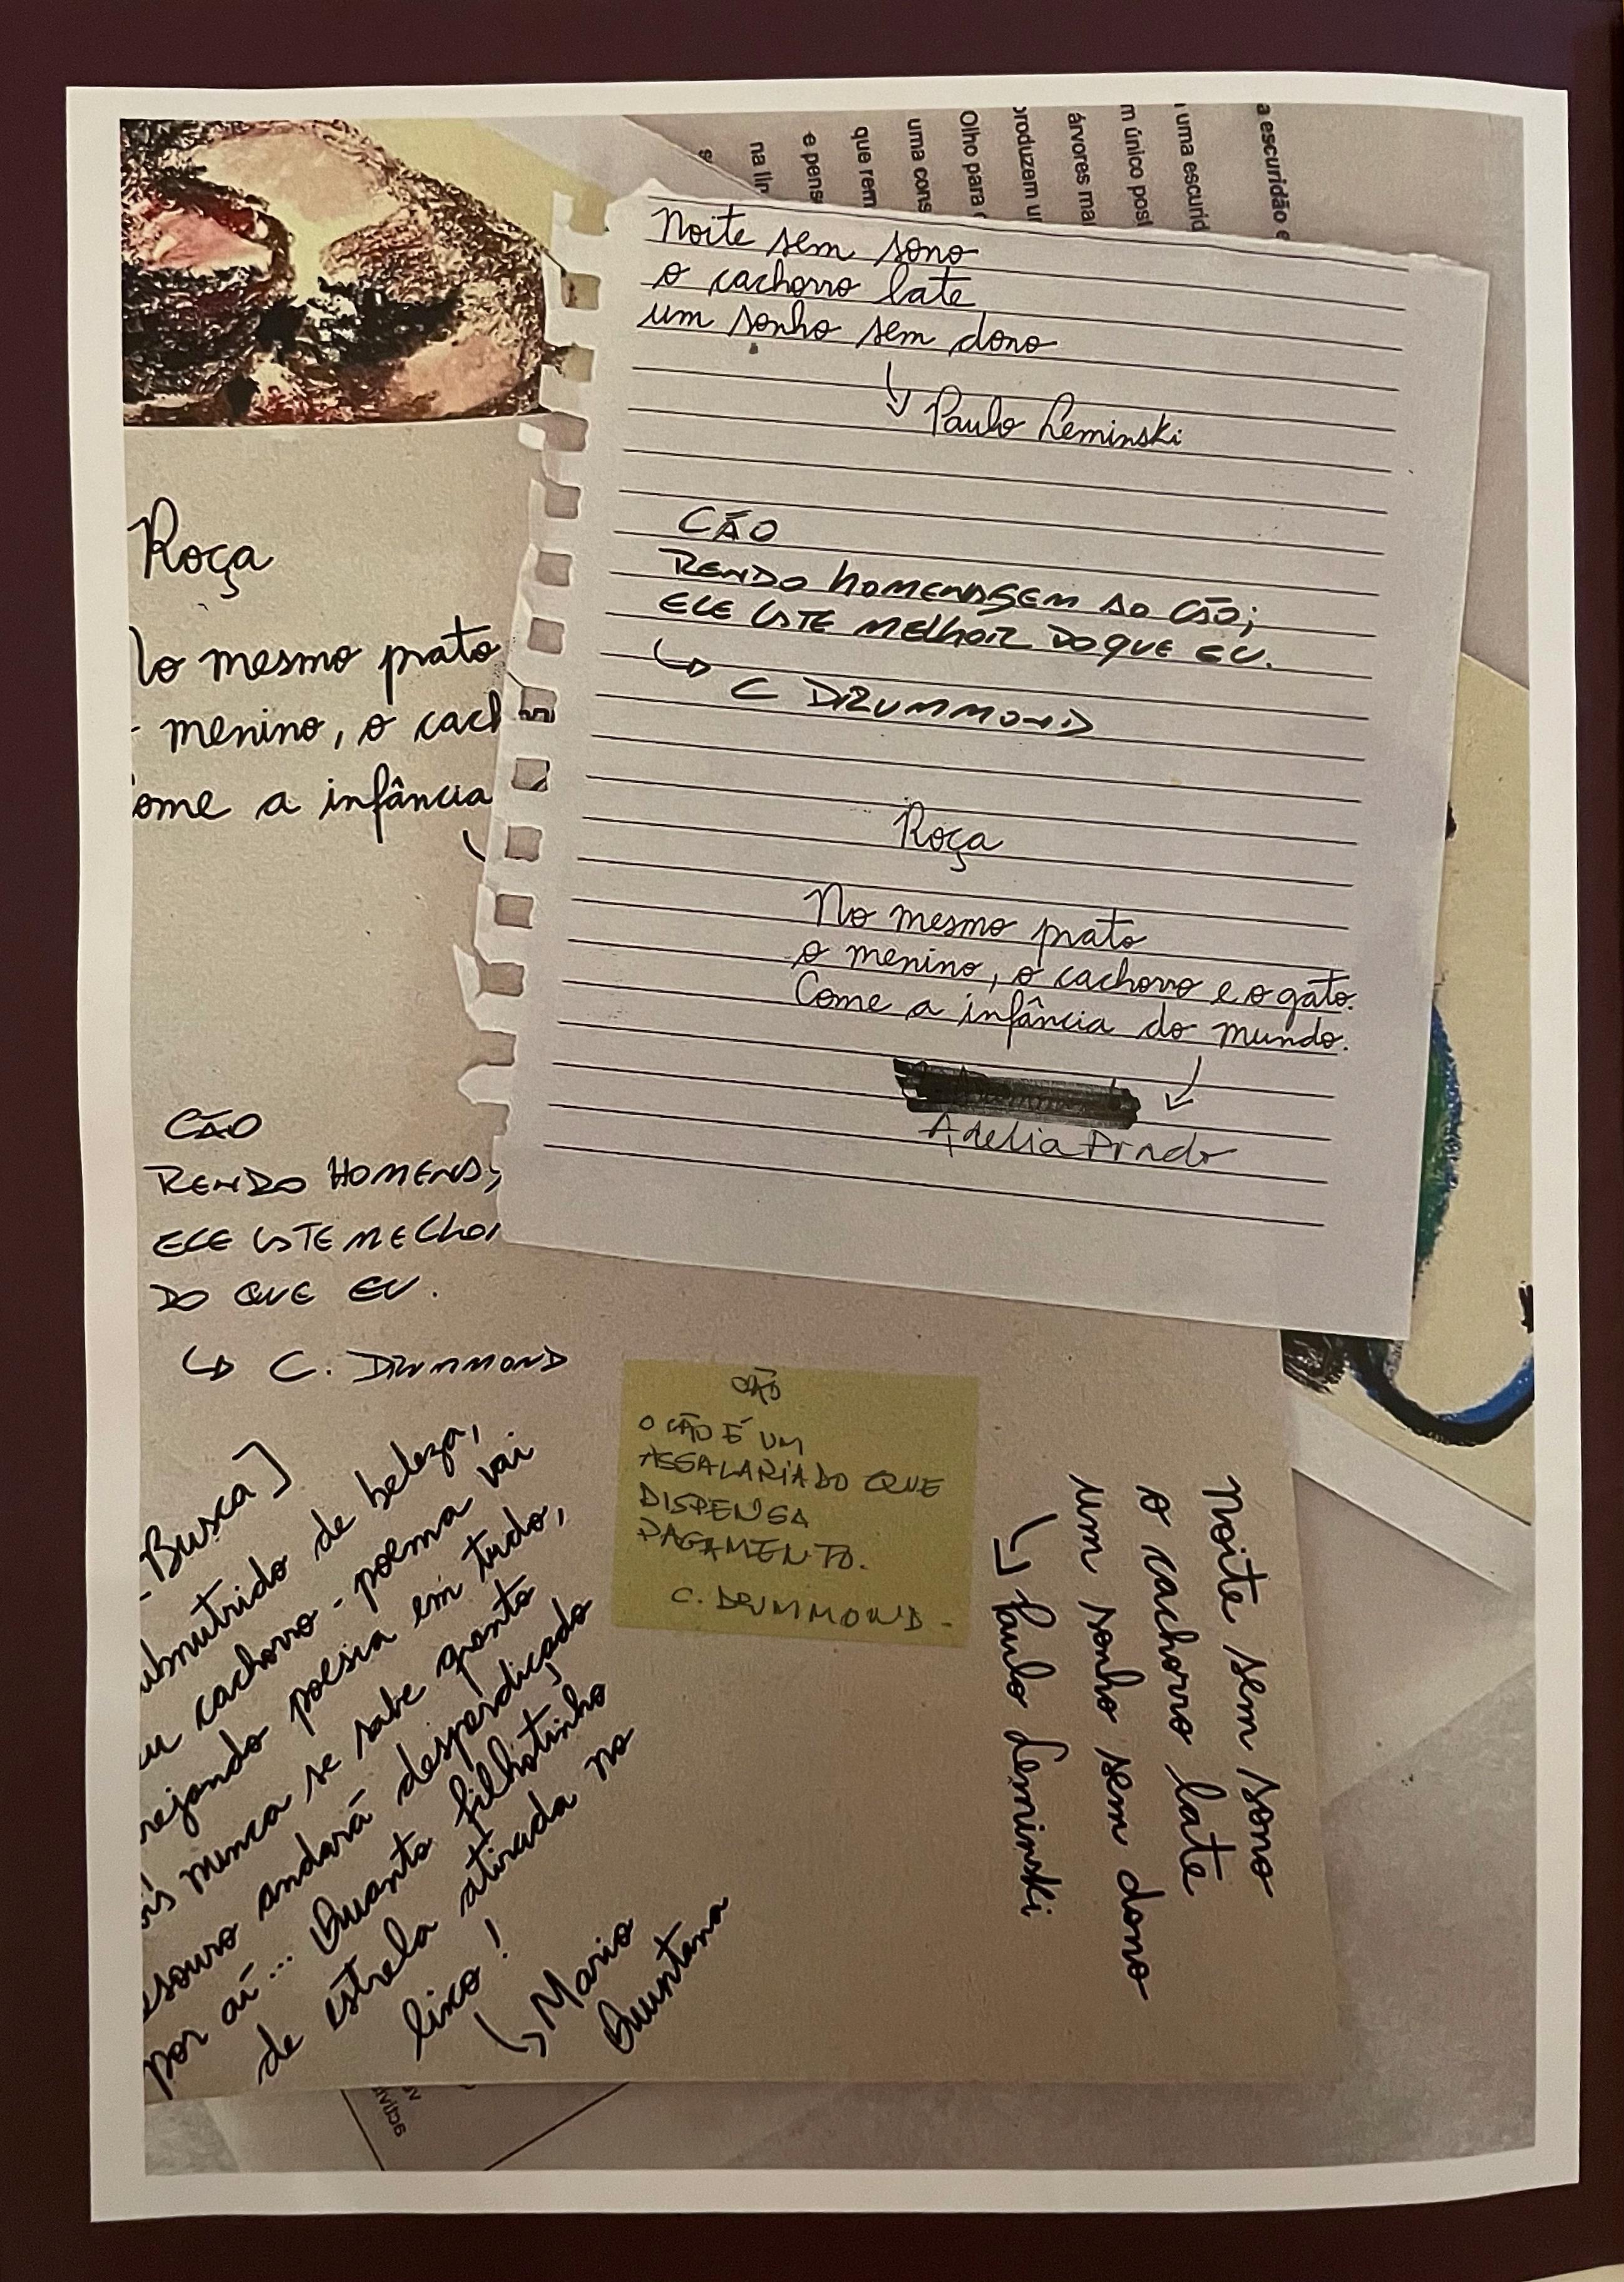 a escuridão e
uma escurid
m único post
árvores mai
produzem u
Olho para
uma cons
que rem
e pens
na lin
Noite sem sono
o cachorro late
um sonho sem dono
Paulo Leminski
CÃO
RENDO HOMENAGEM AO CÃO;
ELE LATE MELHOR DO QUE EU.
C DRUMMOND
Roça
No mesmo prato
o menino, o cachorro e o gato.
Come a infância do mundo.
Adelia Prado
Roça
No mesmo prato
menino, o cach
ome a infância
CÃO
RENDO HOMENAG
ELE LATE MELHO
DO QUE EU.
C. DRUMMOND
CÃO
O CÃO É UM
ASSALARIADO QUE
DISPENSA
PAGAMENTO.
C. DRUMMOND
[Busca]
ubnutrido de beleza,
eu cachorro-poema vai
rejando poesia em tudo,
ois nunca se sabe quanto
esouro andará desperdiçado
por aí... Quanto filhotinho
de estrela atirado no
lixo!
Mario
Quintana
Noite sem sono
o cachorro late
um sonho sem dono
Paulo Leminski